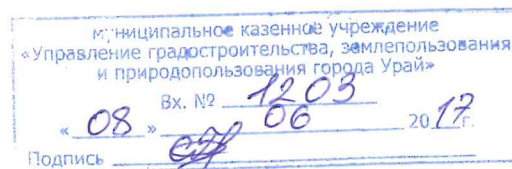 муниципальное казенное учреждение
«Управление градостроительства, землепользования
и природопользования города Урай»
Вх. № 1203
« 08 » 06 2017г.
Подпись